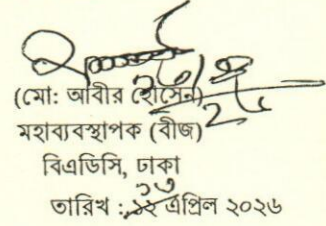 (মো: আবীর হোসেন)
মহাব্যবস্থাপক (বীজ)
বিএডিসি, ঢাকা
তারিখ : ১৩ এপ্রিল ২০২৬